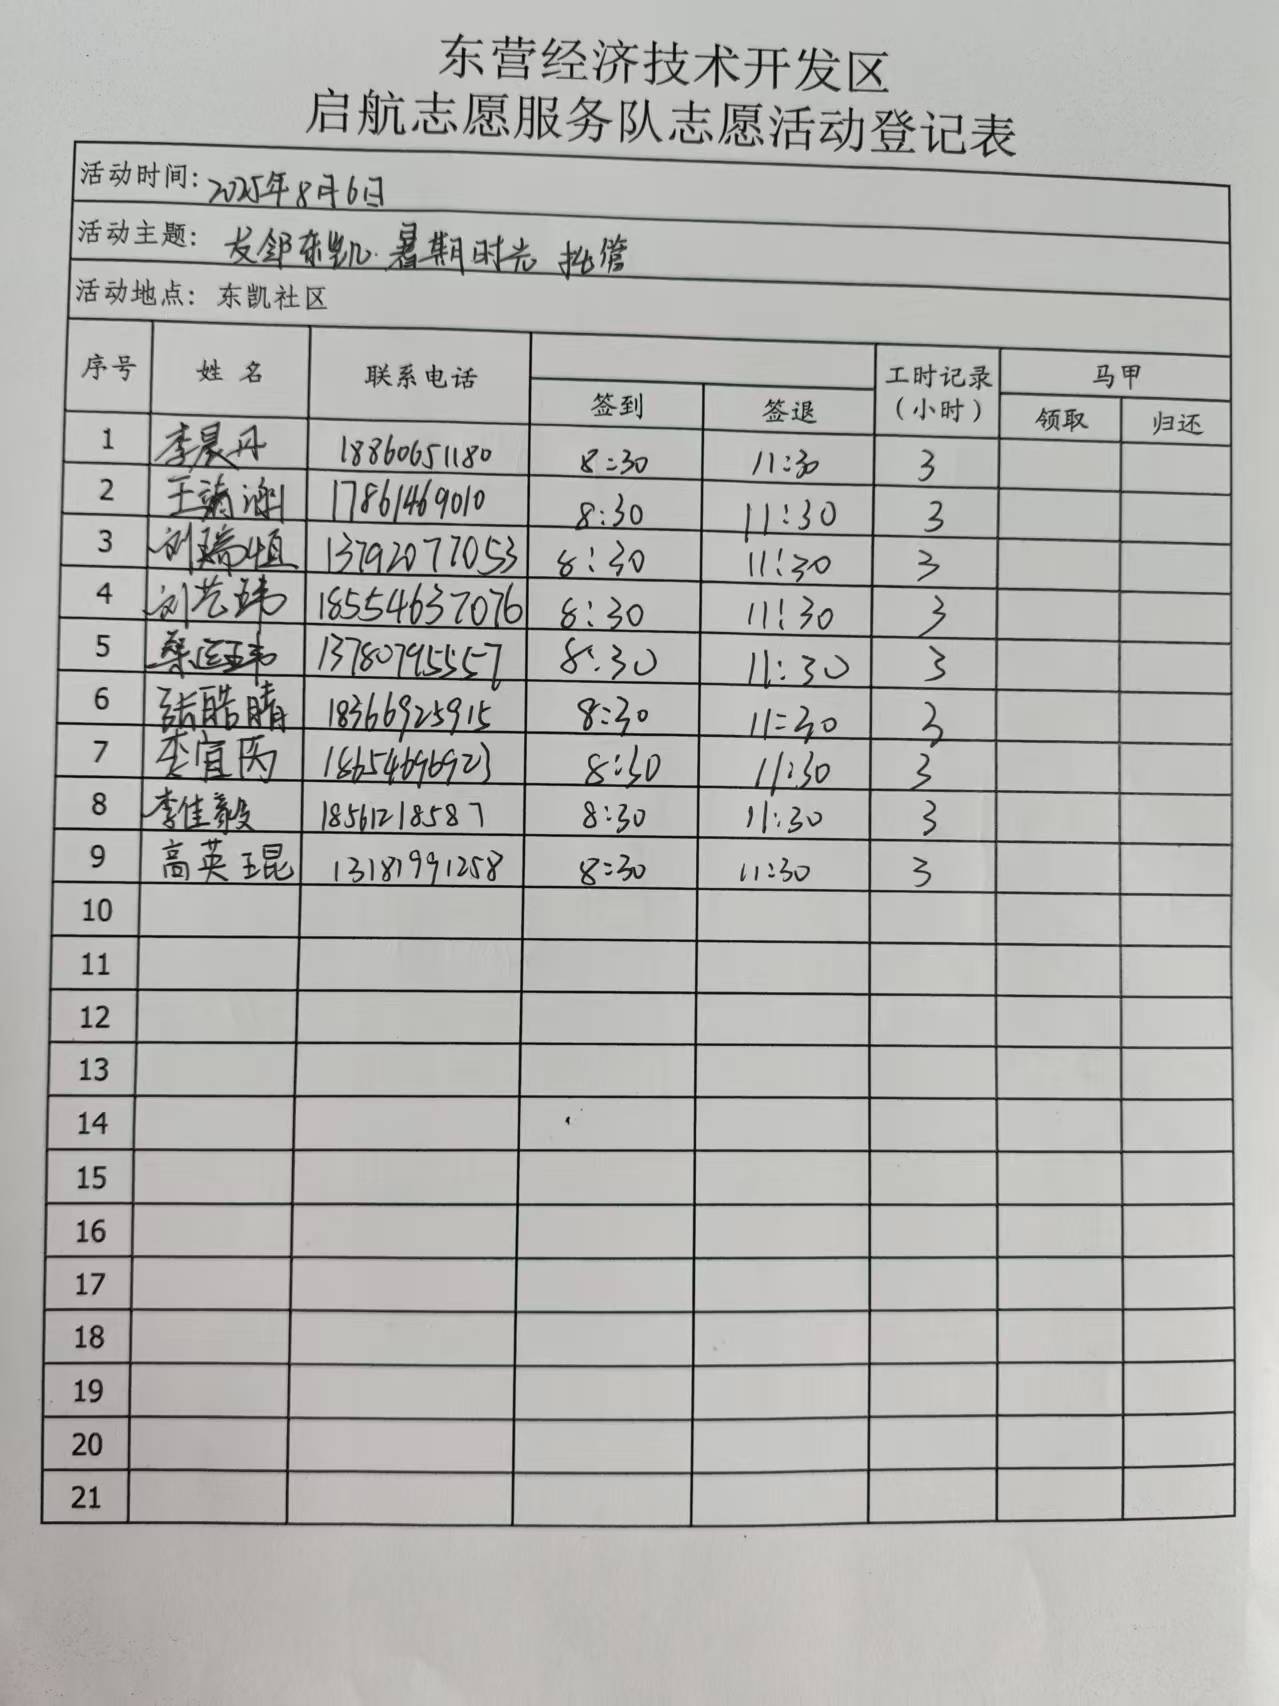 东营经济技术开发区
启航志愿服务队志愿活动登记表
活动时间: 2025年8月6日
活动主题: 友邻东凯·暑期时光 托管
活动地点: 东凯社区
序号 姓名 联系电话 工时记录（小时） 马甲
签到 签退 领取 归还
1 李晨丹 18860651180 8:30 11:30 3
2 王 17861469010 8:30 11:30 3
3 刘瑞恒 13792077053 8:30 11:30 3
4 刘艺玮 18554637076 8:30 11:30 3
5 桑 玮 13780795557 8:30 11:30 3
6 张皓晴 18366925915 8:30 11:30 3
7 李宜芮 18654696923 8:30 11:30 3
8 李佳毅 18561218587 8:30 11:30 3
9 高英琨 13181991258 8:30 11:30 3
10
11
12
13
14
15
16
17
18
19
20
21